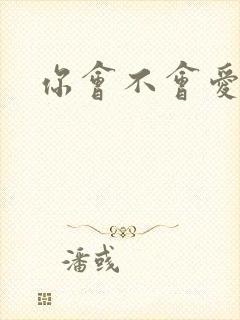 你會不會愛
潘彧